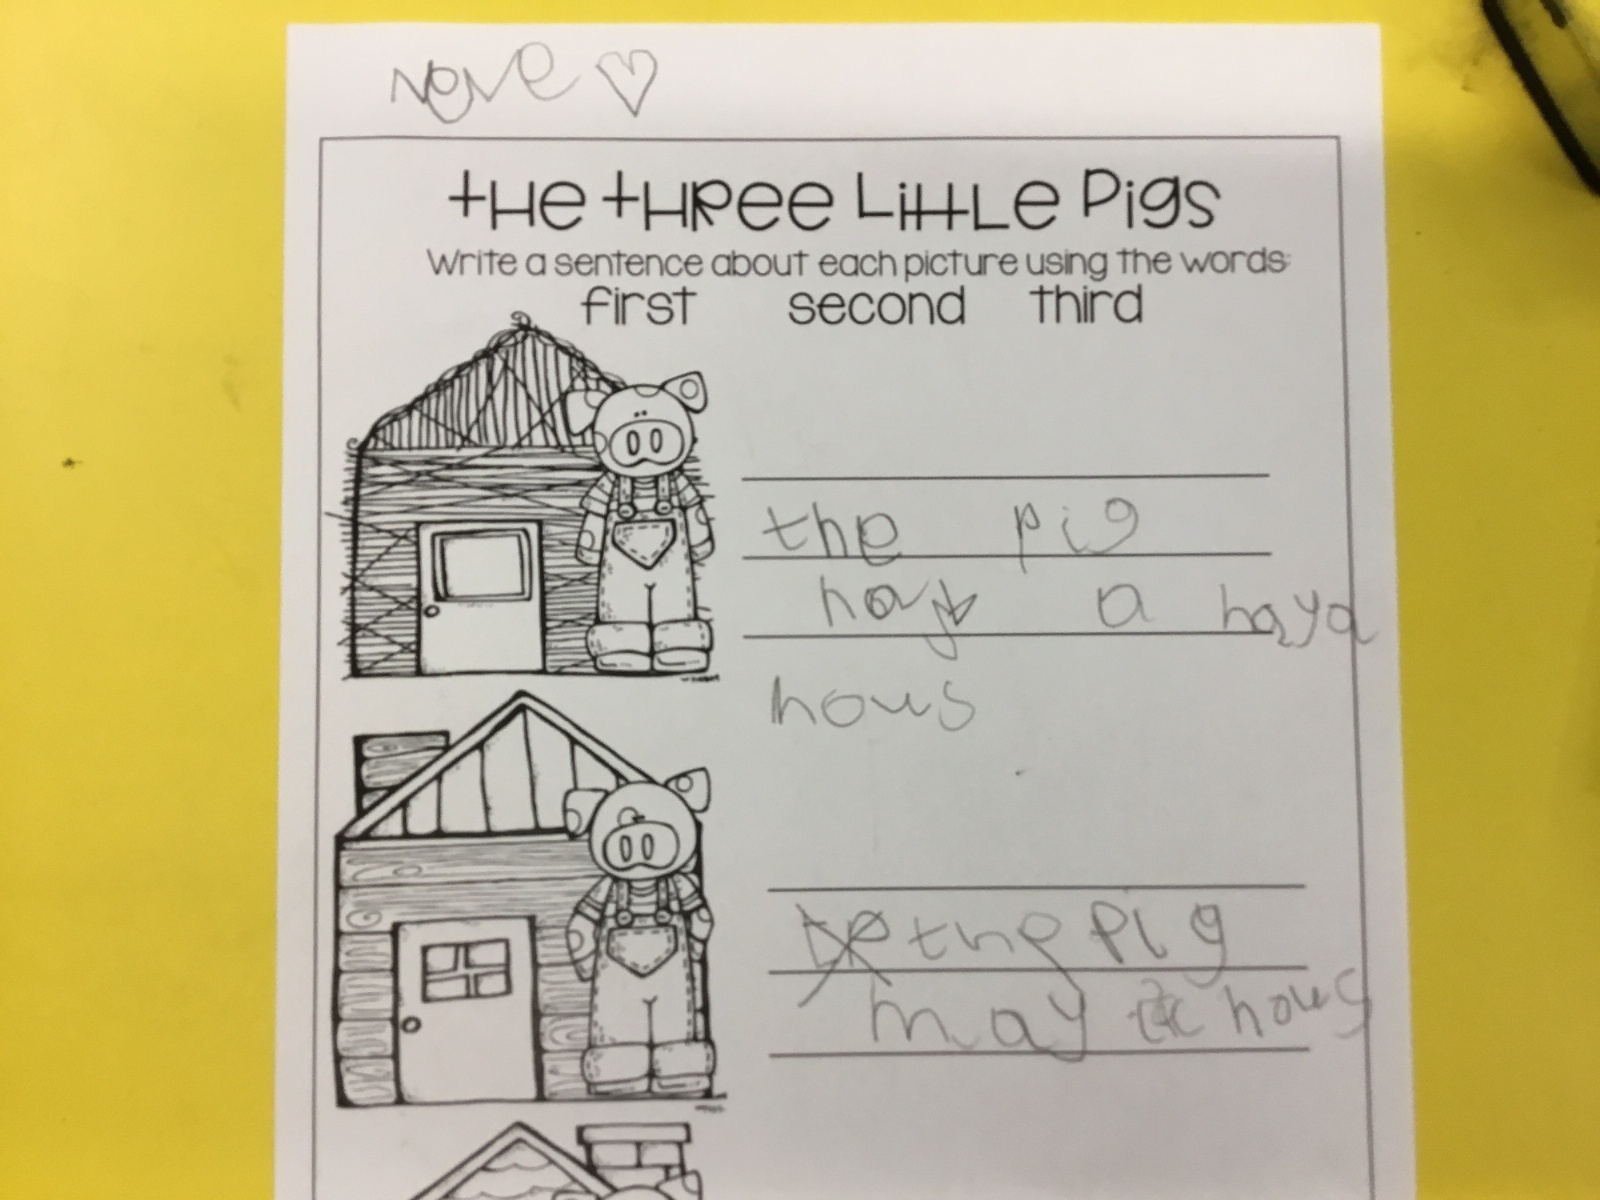 Neve
the three Little Pigs
Write a sentence about each picture using the words:
first second third
the pig
hay a haya
hows
the pig
may hows